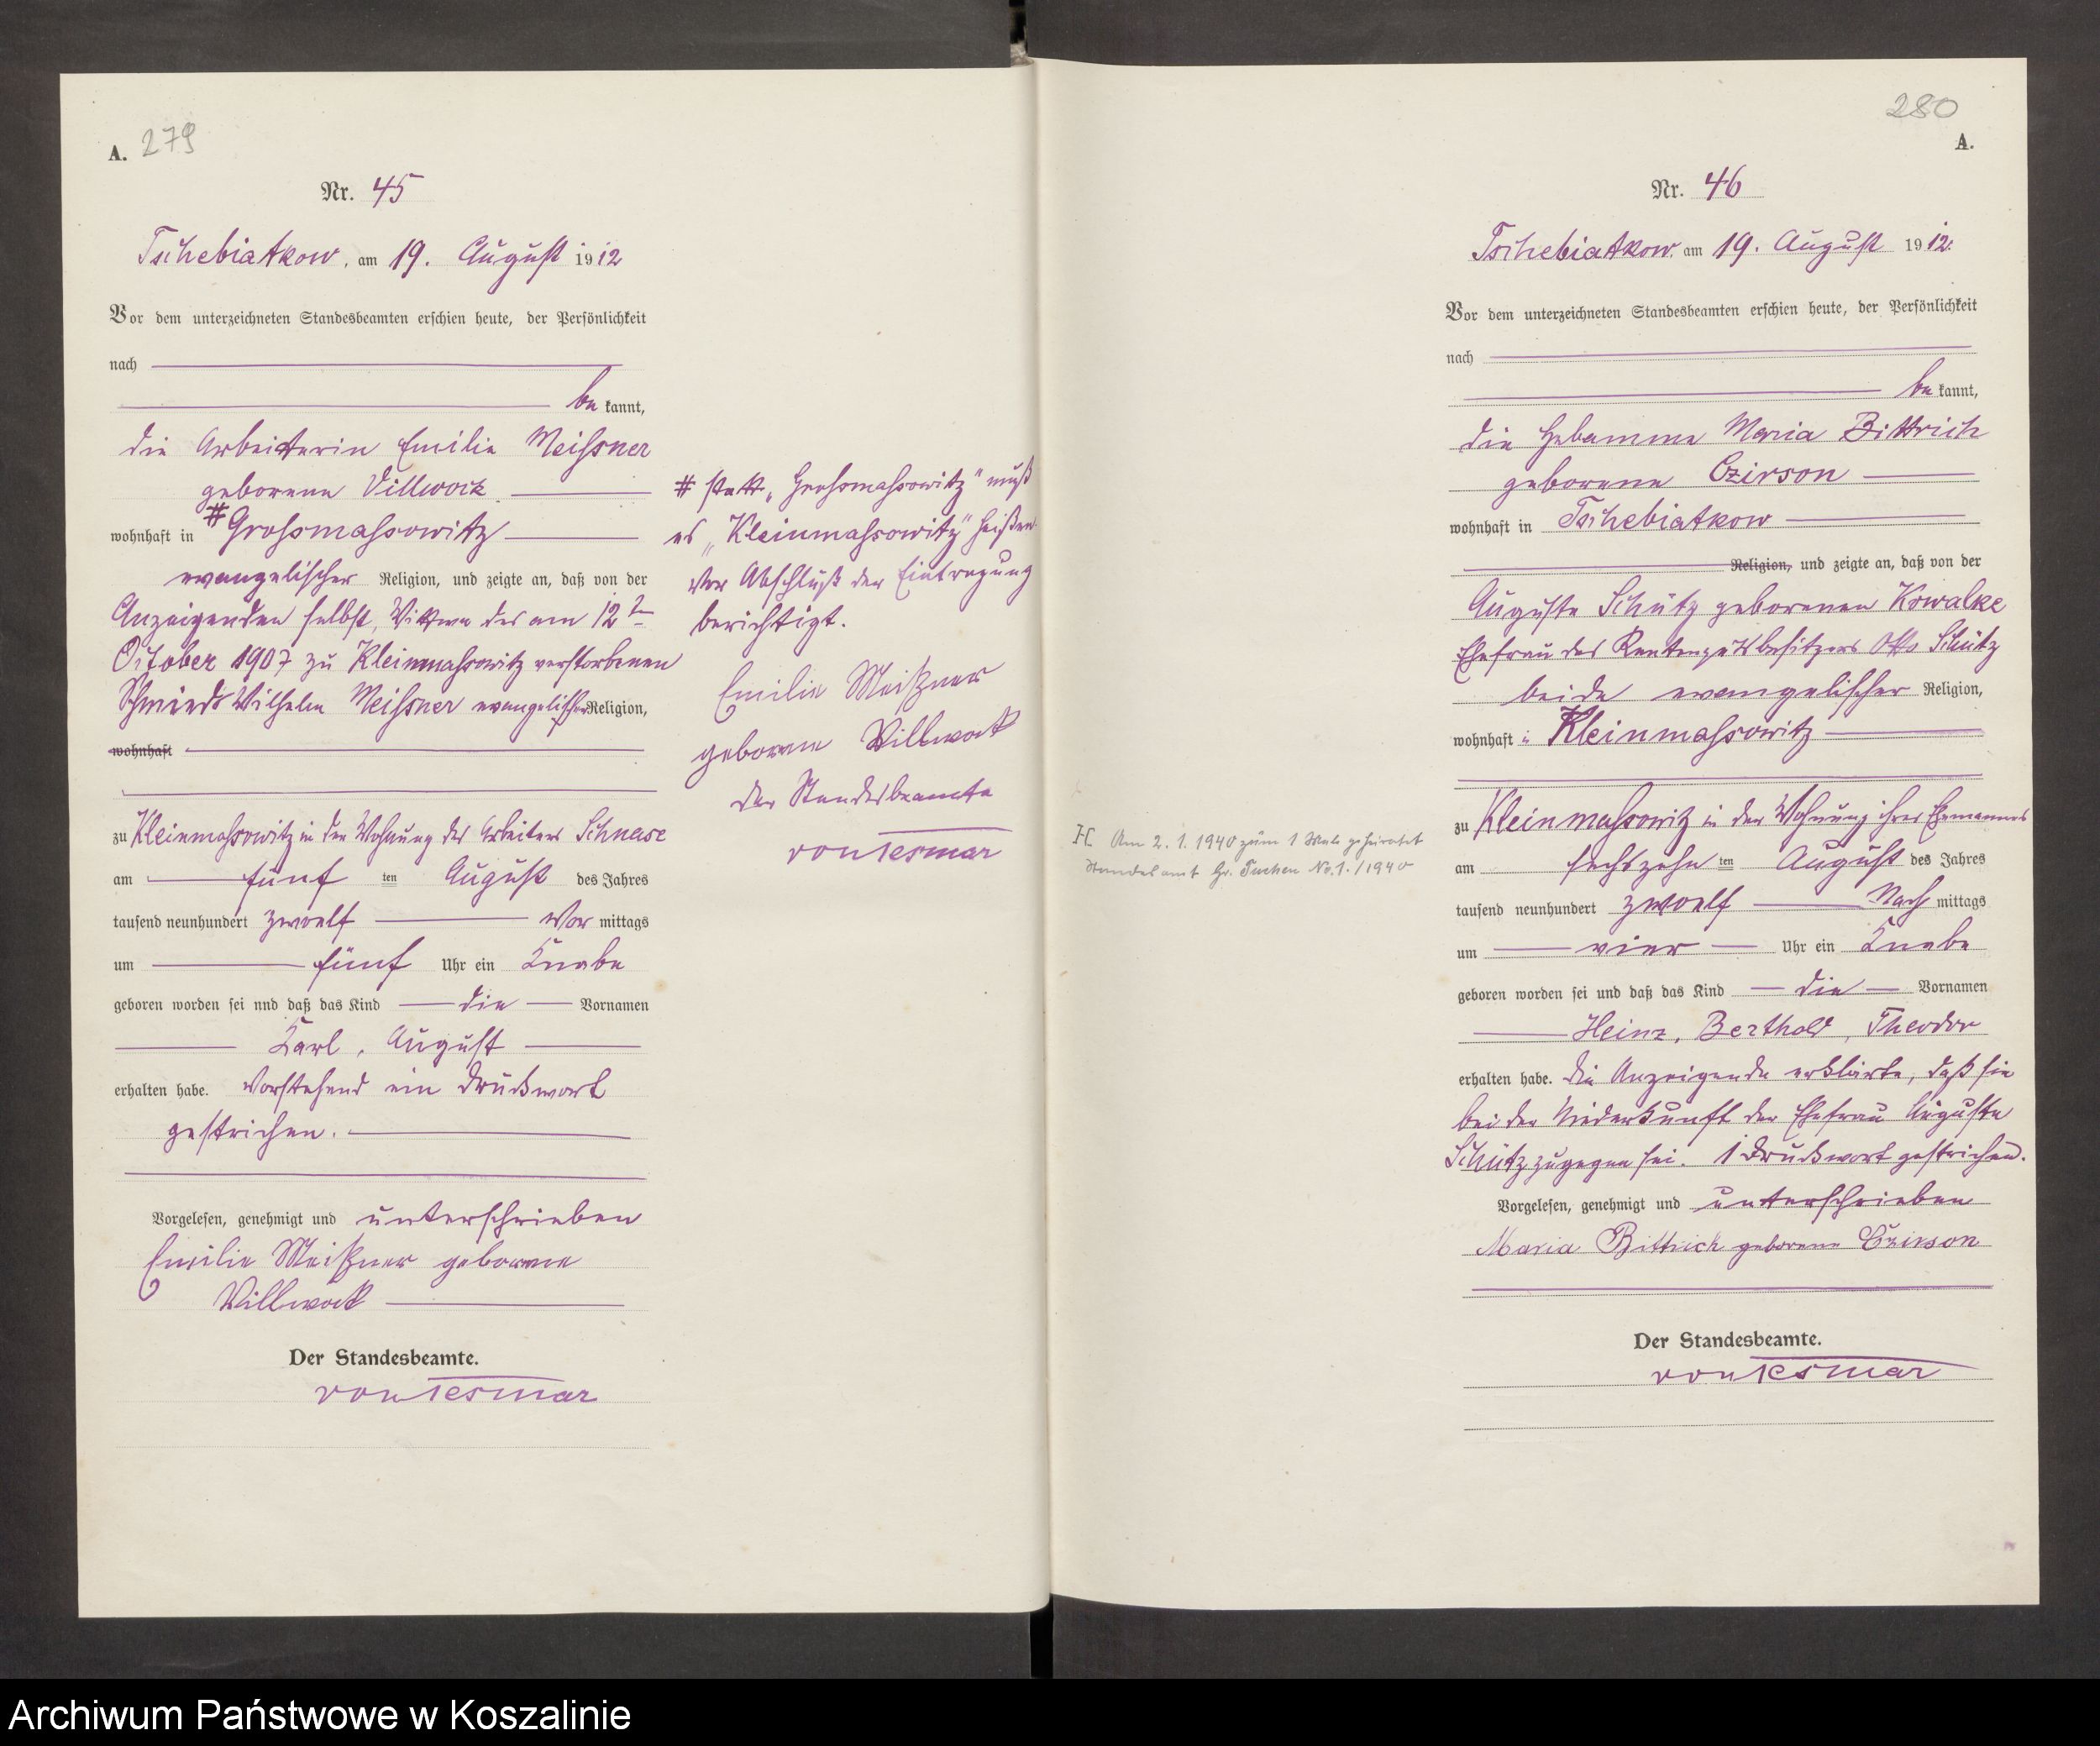 A. 279
Nr. 45
Tschebiatkow, am 19. August 1912
Vor dem unterzeichneten Standesbeamten erschien heute, der Persönlichkeit
nach
be kannt,
die Arbeiterin Emilie Meissner
geborene Villwock
wohnhaft in # Grossmassowitz
evangelischer Religion, und zeigte an, daß von der
Anzeigenden selbst, Wittwe des am 12ten
October 1907 zu Kleinmassowitz verstorbenen
Schmieds Wilhelm Meissner evangelischer Religion,
wohnhaft
zu Kleinmassowitz in der Wohnung des Arbeiters Schnase
am fünf ten August des Jahres
tausend neunhundert zwoelf Vor mittags
um fünf Uhr ein Knabe
geboren worden sei nnd daß das Kind die Vornamen
Karl, August
erhalten habe. Vorstehend ein Druckwort
gestrichen.
Vorgelesen, genehmigt und unterschrieben
Emilie Meißner geborene
Villwock
Der Standesbeamte.
von Tesmar
# statt „Grossmassowitz" muß
es „Kleinmassowitz" heißen.
Vor Abschluß der Eintragung
berichtigt.
Emilie Meißner
geborene Villwock
Der Standesbeamte
von Tesmar
H. Am 2.1.1940 zum 1 Male geheiratet
Standesamt Gr. Tuchen No. 1./1940
280
A.
Nr. 46
Tschebiatkow, am 19. August 1912.
Vor dem unterzeichneten Standesbeamten erschien heute, der Persönlichkeit
nach
be kannt,
die Hebamme Maria Bittrich
geborene Czirson
wohnhaft in Tschebiatkow
Religion, und zeigte an, daß von der
Auguste Schütz geborenen Kowalke
Ehefrau des Rentengutsbesitzers Otto Schütz
beide evangelischer Religion,
wohnhaft in Kleinmassowitz
zu Kleinmassowitz in der Wohnung ihres Ehemannes
am sechszehn ten August des Jahres
tausend neunhundert zwoelf Nach mittags
um vier Uhr ein Knabe
geboren worden sei und daß das Kind die Vornamen
Heinz, Berthold, Theodor
erhalten habe. Die Anzeigende erklärte, daß sie
bei der Niederkunft der Ehefrau Auguste
Schütz zugegen sei. 1 Druckwort gestrichen.
Vorgelesen, genehmigt und unterschrieben
Maria Bittrich geborene Czirson
Der Standesbeamte.
von Tesmar
Archiwum Państwowe w Koszalinie